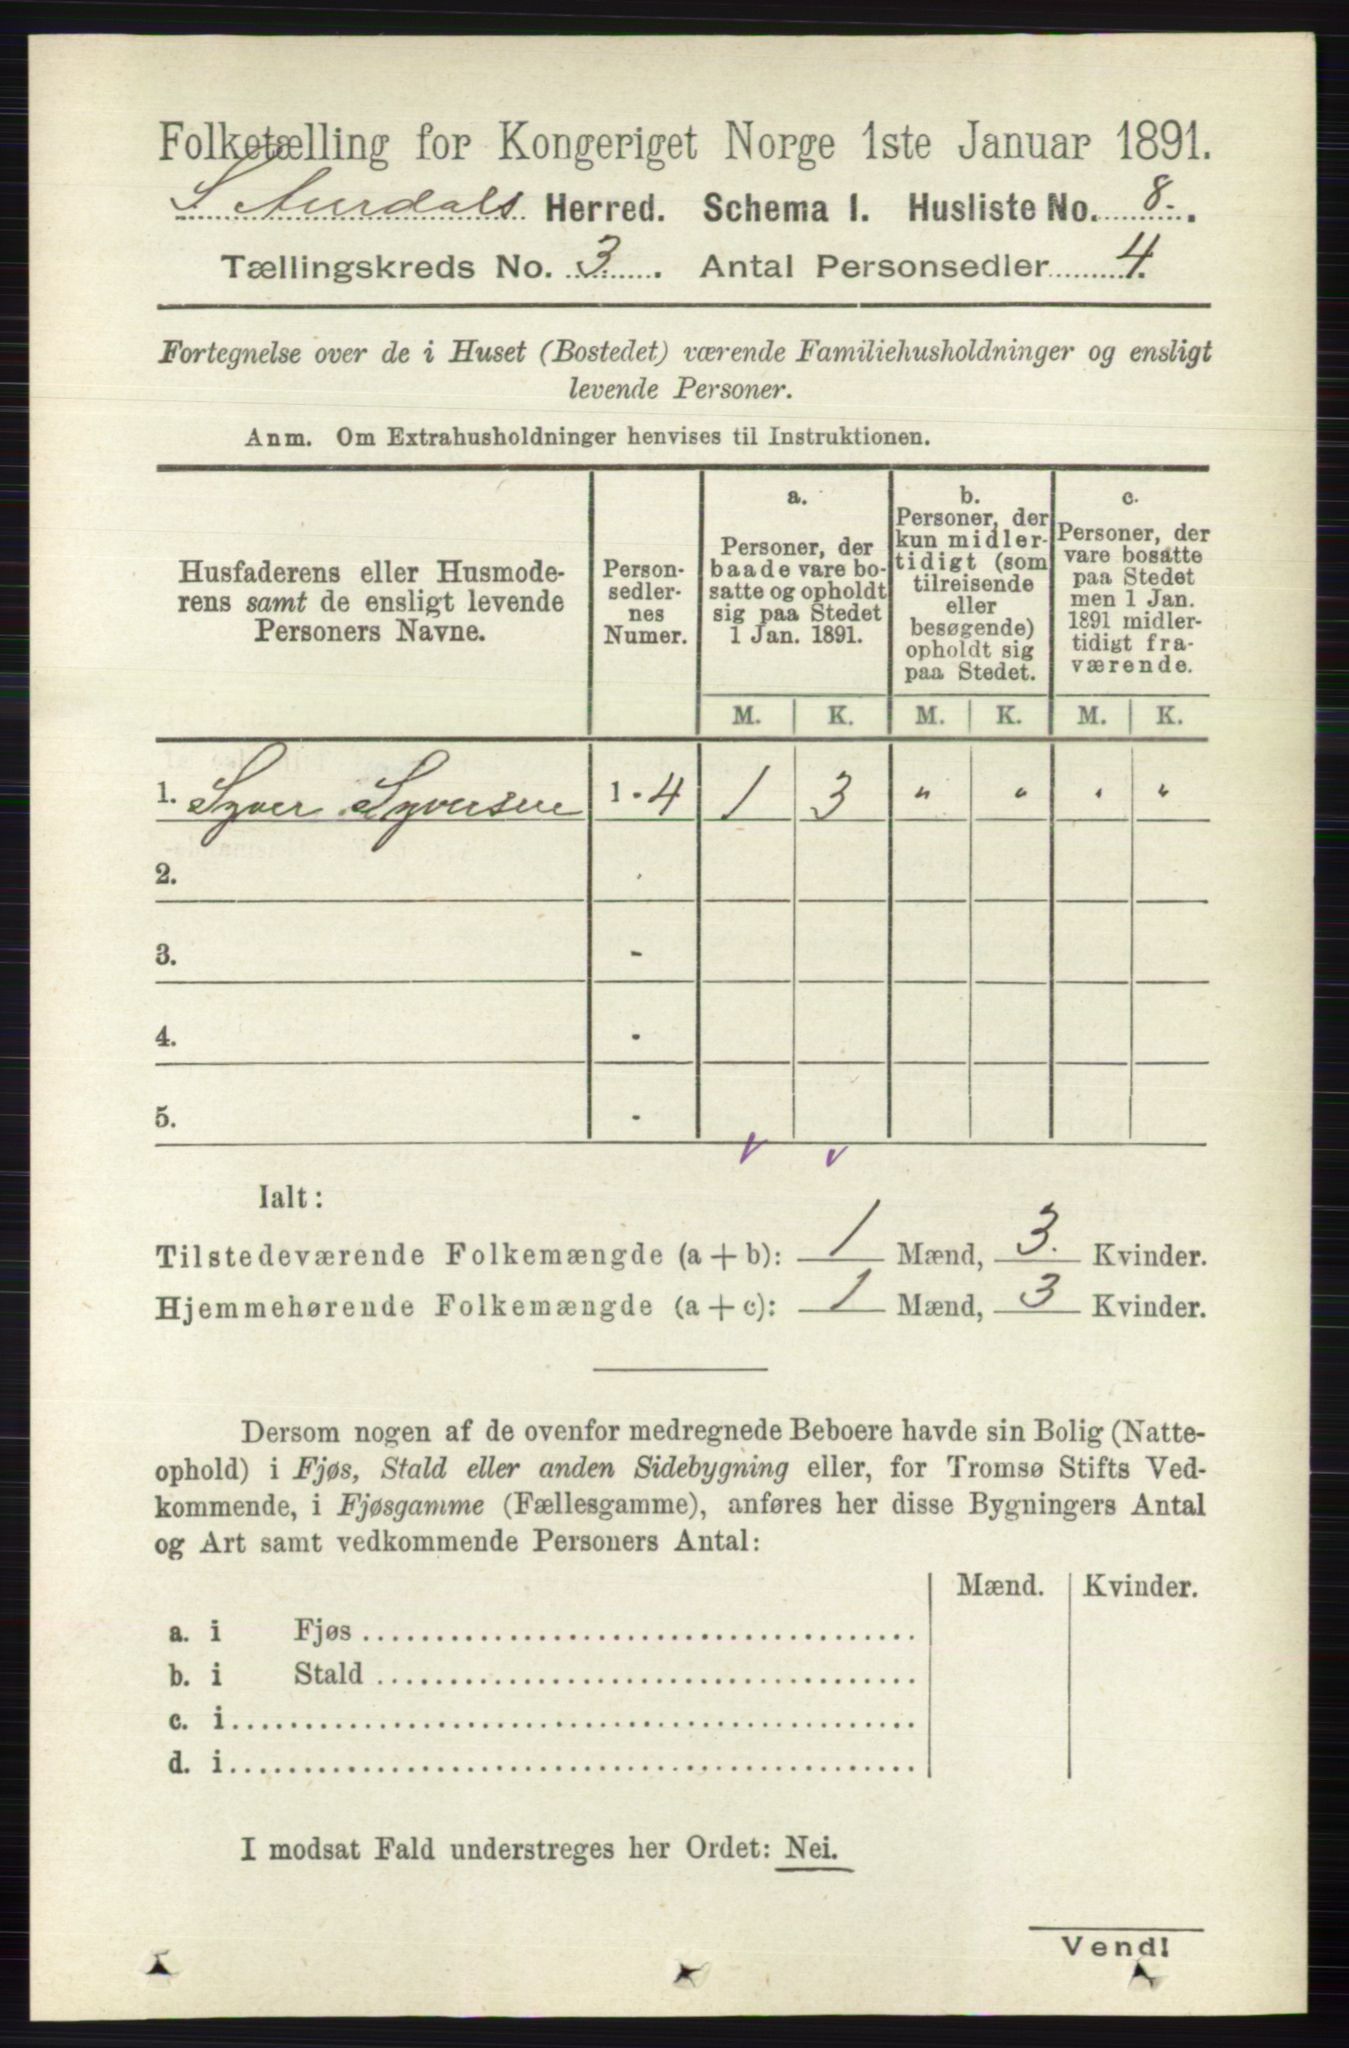 Folketælling for Kongeriget Norge 1ste Januar 1891.
S Aurdals Herred. Schema I. Husliste No. 8.
Tællingskreds No. 3. Antal Personsedler 4.
Fortegnelse over de i Huset (Bostedet) værende Familiehusholdninger og ensligt
levende Personer.
Anm. Om Extrahusholdninger henvises til Instruktionen.
Husfaderens eller Husmode-
rens samt de ensligt levende
Personers Navne.
Person-
sedler-
nes
Numer.
a.
Personer, der
baade vare bo-
satte og opholdt
sig paa Stedet
1 Jan. 1891.
b.
Personer, der
kun midler-
tidigt (som
tilreisende
eller
besøgende)
opholdt sig
paa Stedet.
c.
Personer, der
vare bosatte
paa Stedet
men 1 Jan.
1891 midler-
tidigt fra-
værende.
M. K. M. K. M. K.
1. Syver Syversen 1-4 1 3 " " " "
2.
3. -
4. -
5. -
Ialt:
Tilstedeværende Folkemængde (a + b): 1 Mænd, 3. Kvinder.
Hjemmehørende Folkemængde (a + c): 1 Mænd, 3 Kvinder.
Dersom nogen af de ovenfor medregnede Beboere havde sin Bolig (Natte-
ophold) i Fjøs, Stald eller anden Sidebygning eller, for Tromsø Stifts Ved-
kommende, i Fjøsgamme (Fællesgamme), anføres her disse Bygningers Antal
og Art samt vedkommende Personers Antal:
Mænd. Kvinder.
a. i Fjøs
b. i Stald
c. i
d. i
I modsat Fald understreges her Ordet: Nei.
Vend!